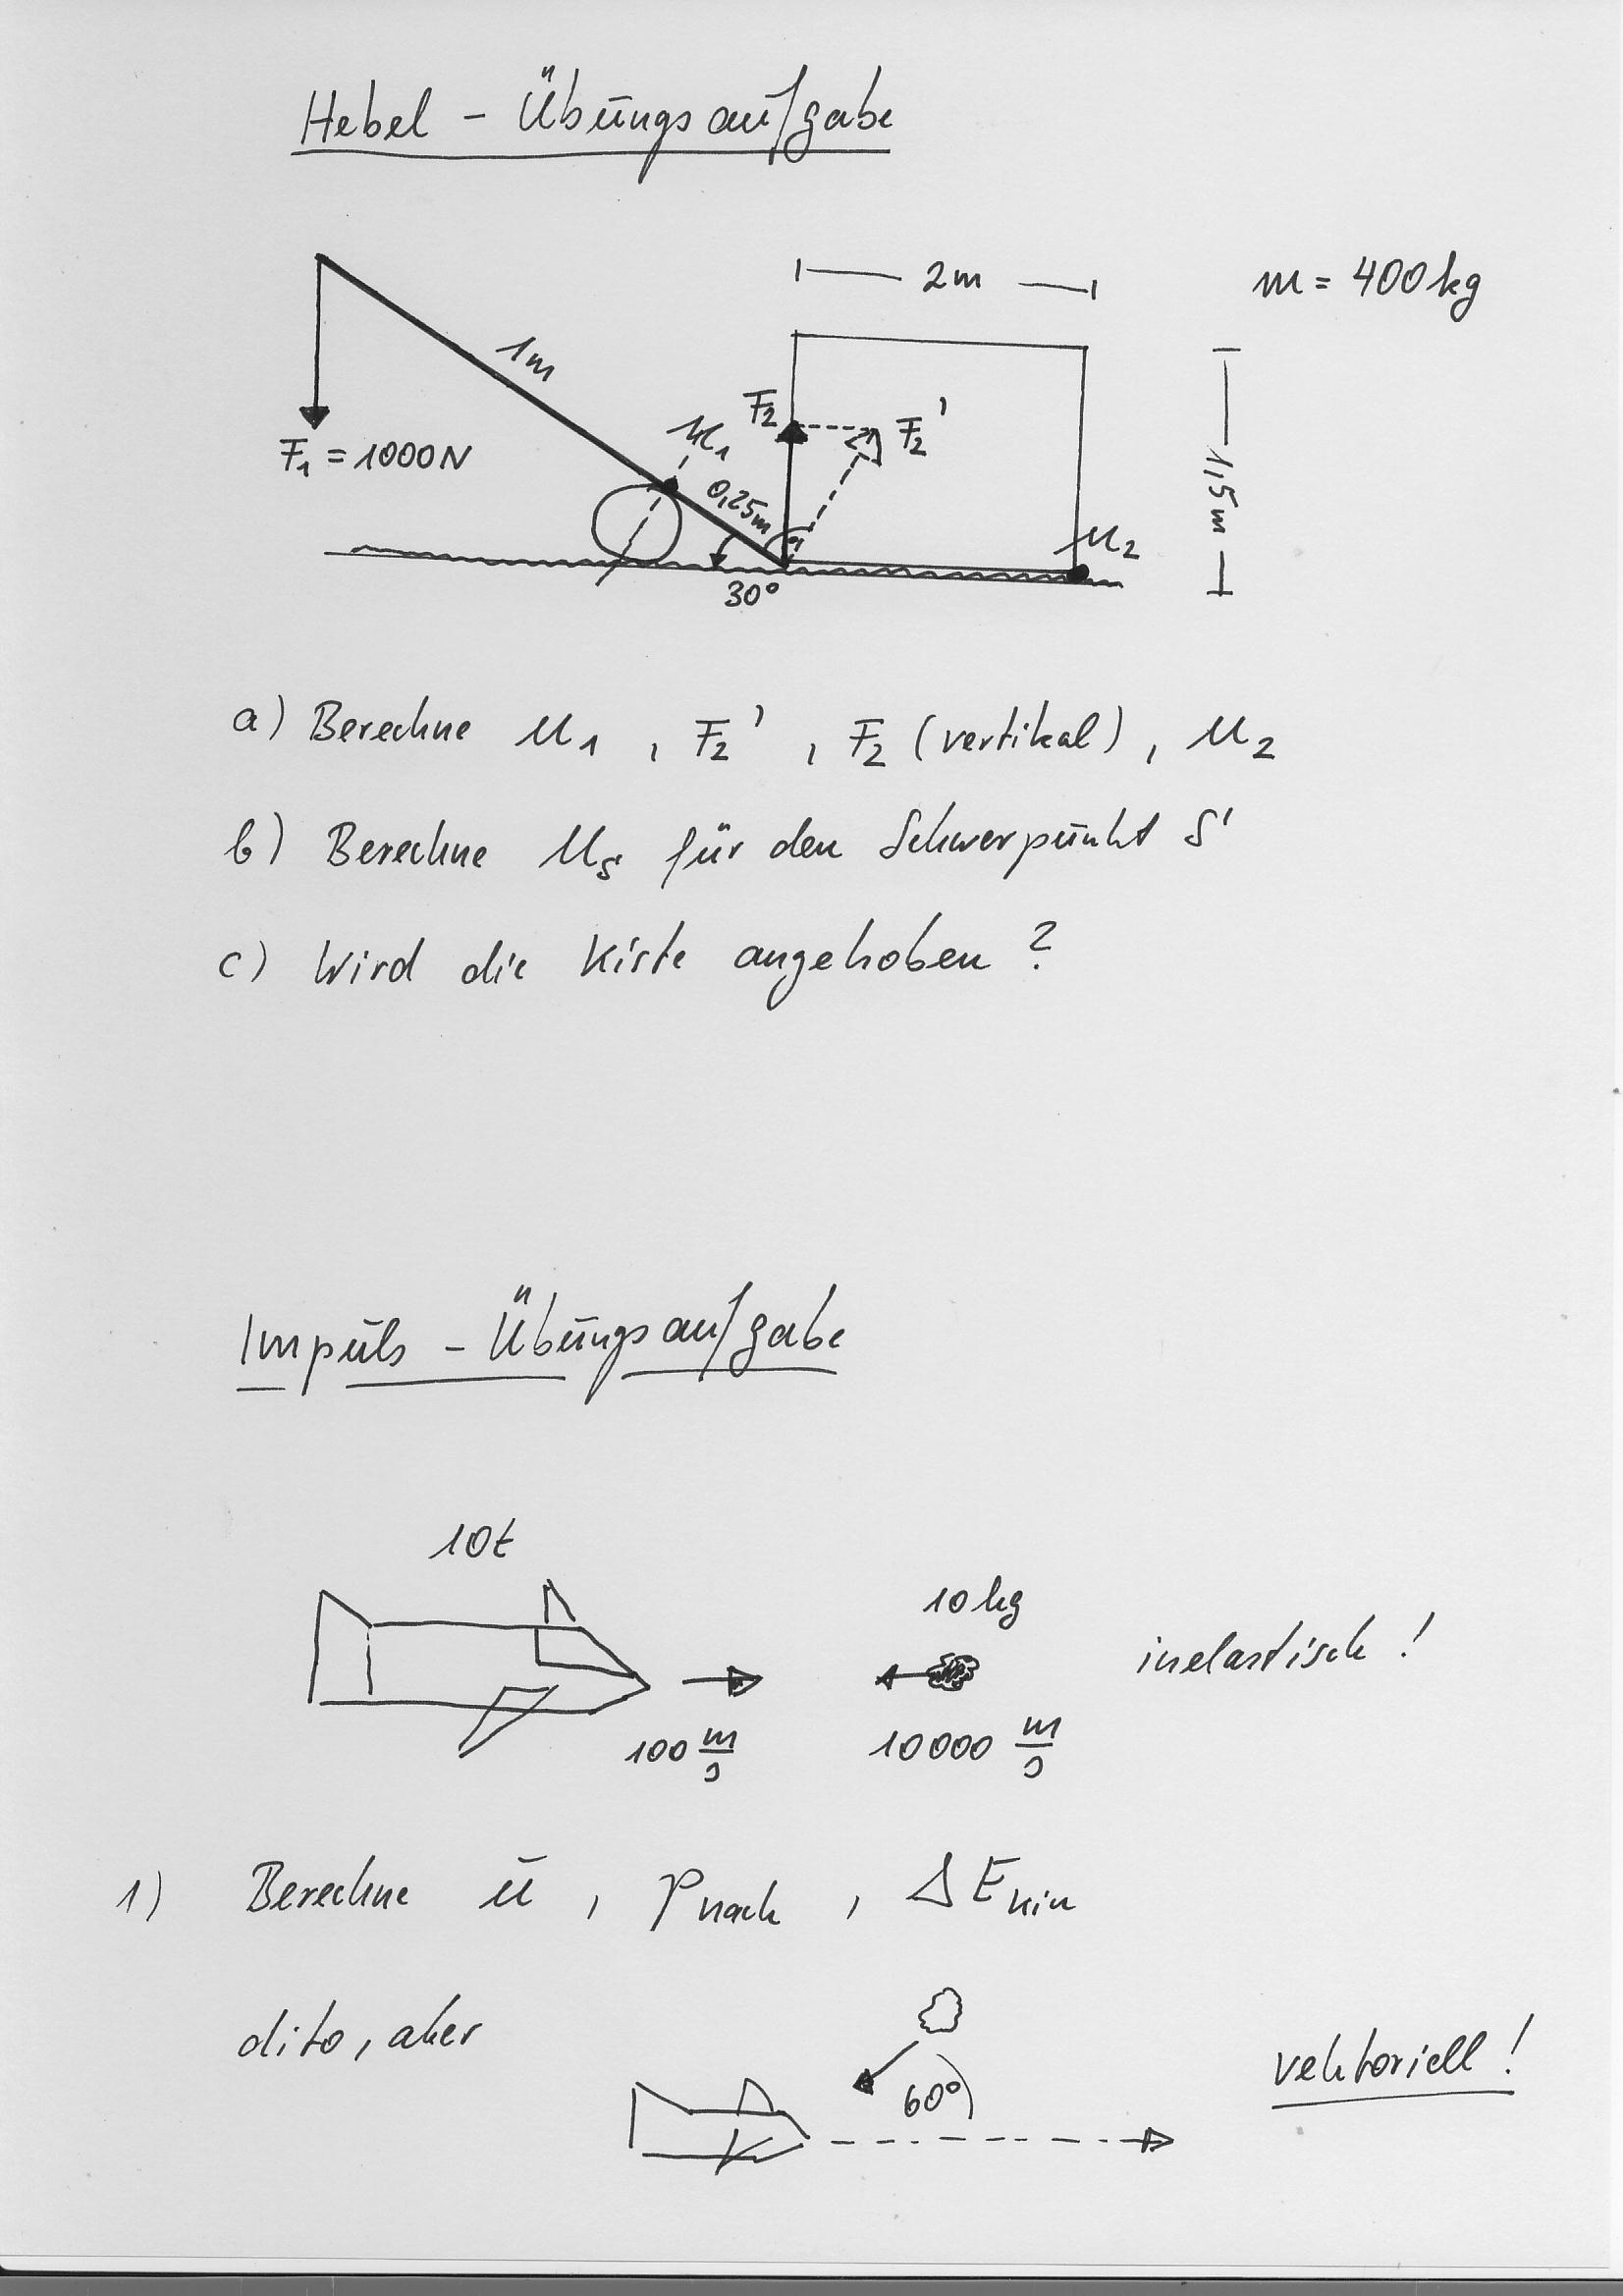 Hebel - Übungsaufgabe
2m
m = 400kg
1m
F₂
F₂'
M₁
F₁ = 1000N
0,25m
1,5m
M₂
30°
a) Berechne M₁ , F₂' , F₂ (vertikal) , M₂
b) Berechne Mₛ für den Schwerpunkt S
c) Wird die Kiste angehoben ?
Impuls - Übungsaufgabe
10t
10kg
inelastisch !
100 m/s
10000 m/s
1) Berechne u , p nach , ΔE kin
dito, aber
60°
vektoriell !